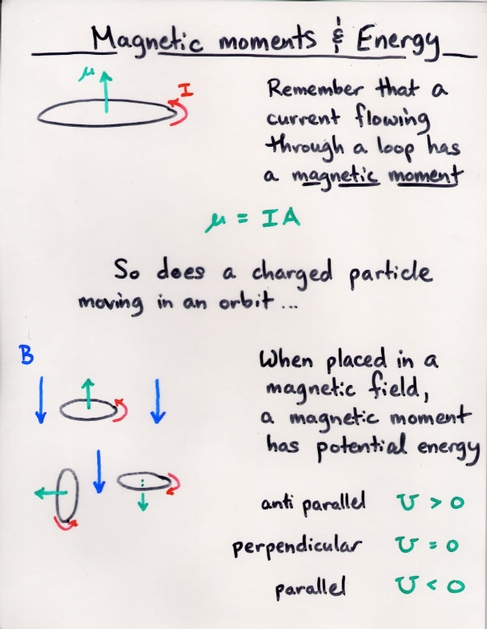 Magnetic moments & Energy
μ
I
Remember that a
current flowing
through a loop has
a magnetic moment
μ = IA
So does a charged particle
moving in an orbit...
B
When placed in a
magnetic field,
a magnetic moment
has potential energy
anti parallel U > 0
perpendicular U = 0
parallel U < 0